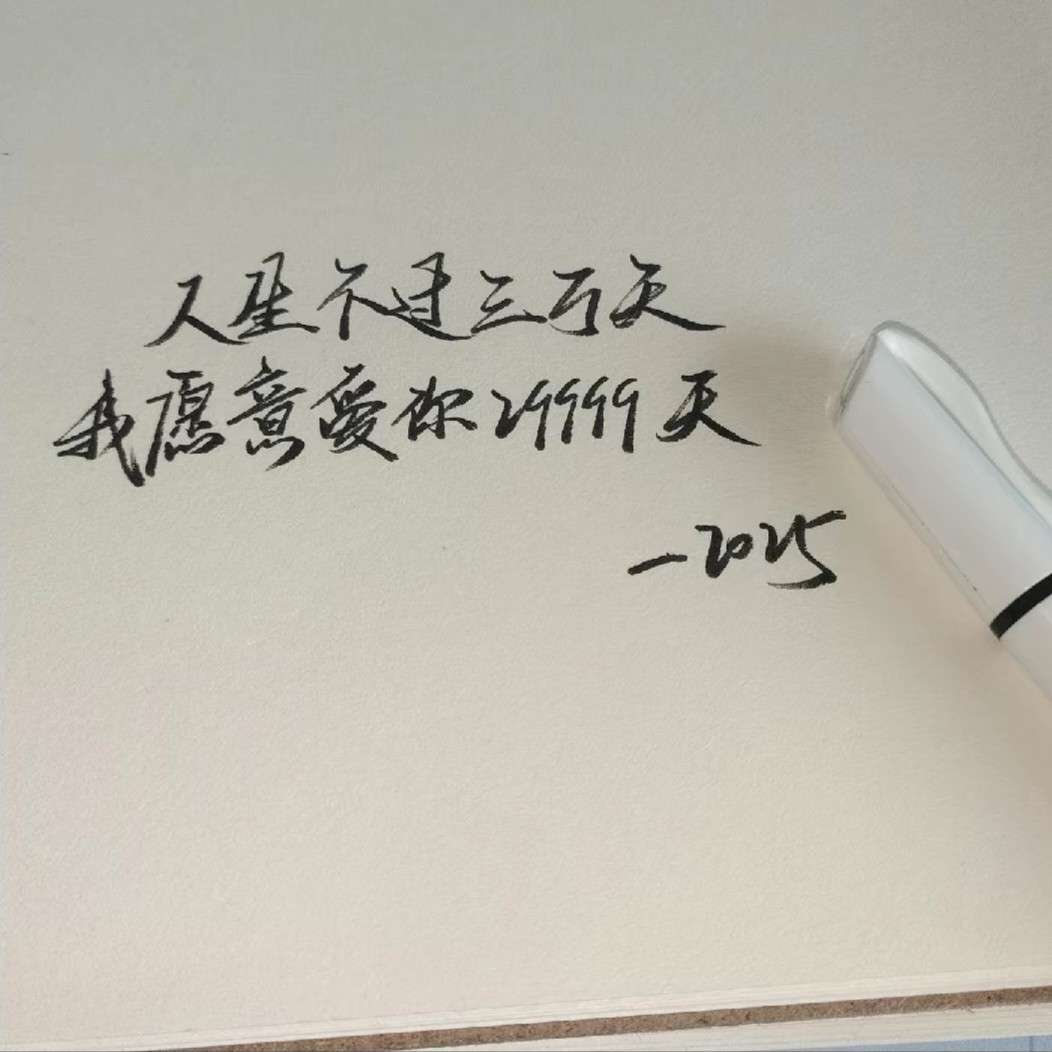 人星不过三万天
我愿意愛你29999天
—2025